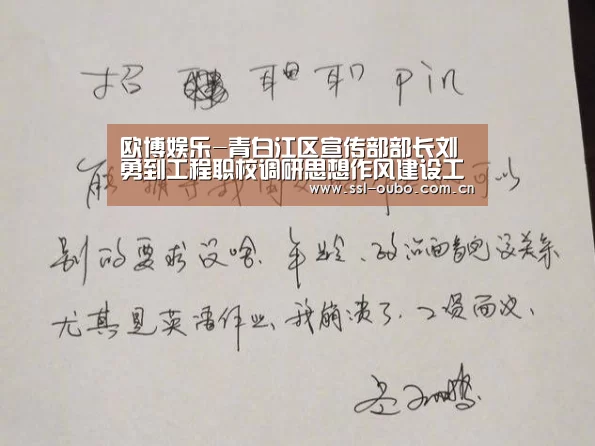 招 pin
欧博娱乐-青白江区宣传部部长刘
勇到工程职校调研思想作风建设工
www.ssl-oubo.com.cn
能辅导我 可以
别的要求没啥、年龄、政治面貌没关系
尤其是英语作业、我崩溃了、工资面议、